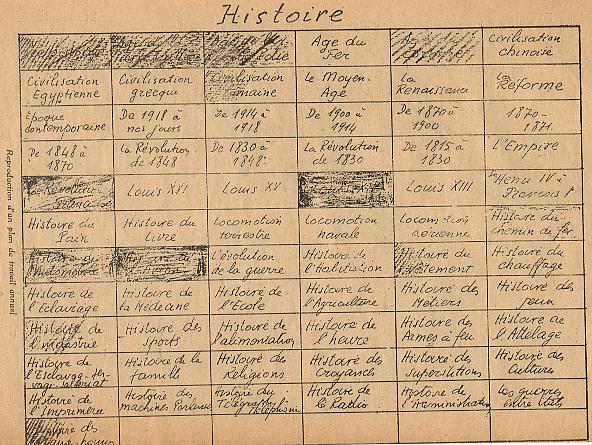 Histoire
Age du
Fer
Civilisation
chinoise
Civilisation
Egyptienne
Civilisation
grecque
Civilisation
romaine
Le Moyen-
Age
La
Renaissance
La
Réforme
Epoque
contemporaine
De 1918 à
nos jours
De 1914 à
1918
De 1900 à
1914
De 1870 à
1900
1870-
1871
De 1848 à
1870
La Révolution
de 1848
De 1830 à
1848
La Révolution
de 1830
De 1815 à
1830
L'Empire
La Révolution
Louis XVI
Louis XV
Louis XIII
Henri IV à
François I
Histoire du
Pain
Histoire du
livre
Locomotion
terrestre
Locomotion
navale
Locomotion
aérienne
Histoire du
chemin de fer
Histoire de
l'Automobile
Histoire de
l'Avion
L'évolution
de la guerre
Histoire de
l'Habitation
Histoire du
Vêtement
Histoire du
chauffage
Histoire de
l'éclairage
Histoire de
la Médecine
Histoire de
l'Ecole
Histoire de
l'Agriculture
Histoire des
Métiers
Histoire des
jeux
Histoire de
l'industrie
Histoire des
sports
Histoire de
l'alimentation
Histoire de
l'heure
Histoire des
Armes à feu
Histoire de
l'Attelage
Histoire de
l'Esclavage-Ser-
vage-Salariat
Histoire de la
famille
Histoire des
Religions
Histoire des
Croyances
Histoire des
superstitions
Histoire des
Cultures
Histoire de
l'Imprimerie
Histoire des
machines
Histoire du
Télégraphe
Téléphone
Histoire de
la Radio
Histoire de
l'Administration
Les guerres
entre
Histoire des
Reproduction d'un plan de travail annuel